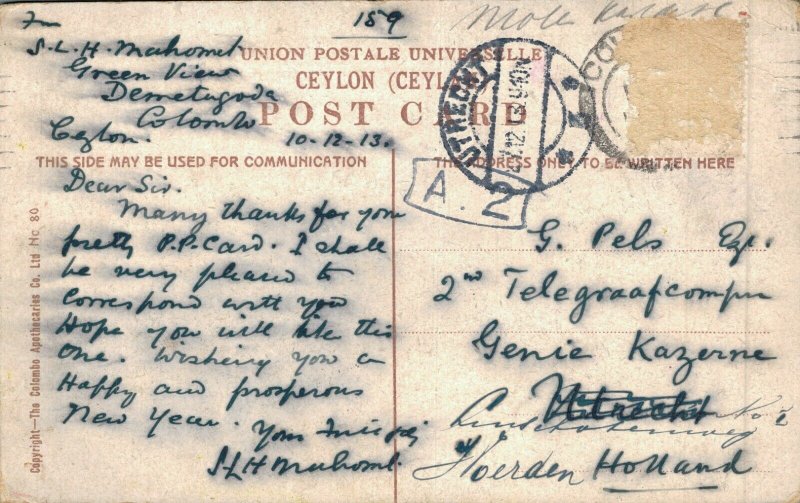 Fm 159
S. L. H. Mahomet
Green View
Demetagoda
Colombo
Ceylon. 10-12-13.
UNION POSTALE UNIVERSELLE
CEYLON (CEYLAN)
POST CARD
THIS SIDE MAY BE USED FOR COMMUNICATION
THE ADDRESS ONLY TO BE WRITTEN HERE
Dear Sir.
Many thanks for your
pretty P.P. Card. I shall
be very pleased to
correspond with you
Hope you will like this
one. Wishing you a
Happy and prosperous
New Year.
Yours
S L H Mahomet.
UTRECHT
A. 2
G. Pels Esq.
2nd Telegraafcompn
Genie Kazerne
Utrecht
Woerden Holland
Copyright—The Colombo Apothecaries Co. Ltd No. 80